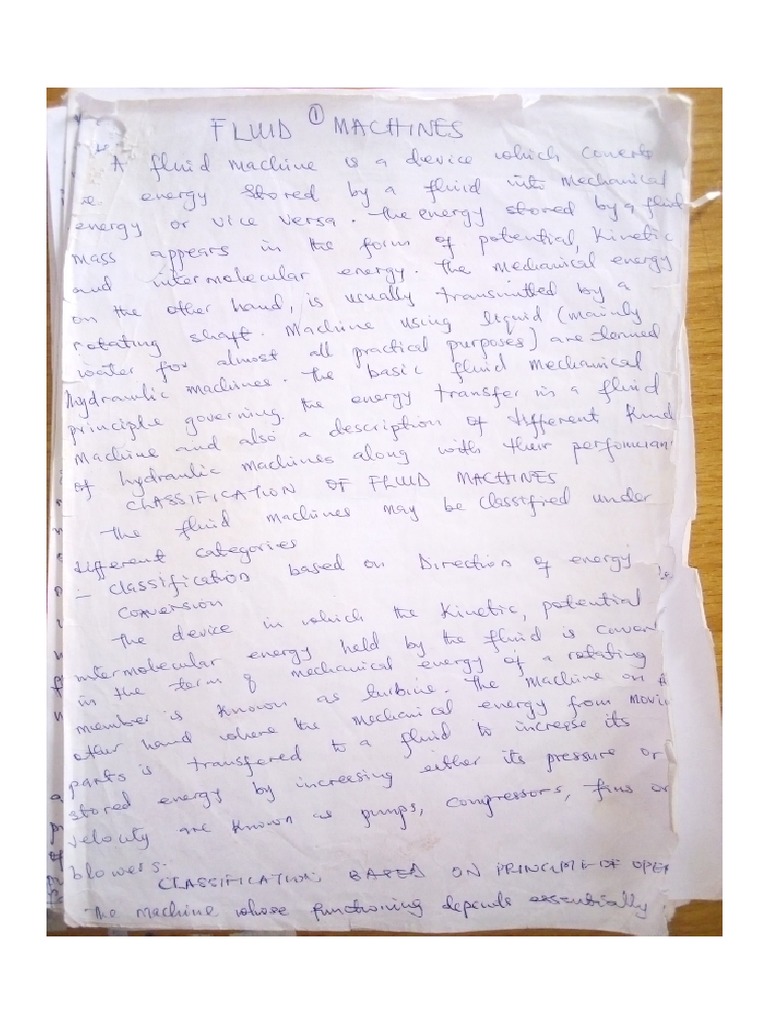 FLUID ① MACHINES
A fluid machine is a device which converts
the energy stored by a fluid into mechanical
energy or vice versa. The energy stored by a fluid
mass appears in the form of potential, kinetic
and intermolecular energy. The mechanical energy
on the other hand, is usually transmitted by a
rotating shaft. Machine using liquid (mainly
water for almost all practical purposes) are termed
hydraulic machines. The basic fluid mechanical
principle governing the energy transfer in a fluid
machine and also a description of different kind
of hydraulic machines along with their
CLASSIFICATION OF FLUID MACHINES
The fluid machines may be classified under
different categories
:- Classification based on Direction of energy
conversion
The device in which the kinetic, potential
intermolecular energy held by the fluid is conver
in the term of mechanical energy of a rotating
member is known as turbine. The machine on
other hand where the mechanical energy from movin
parts is transfered to a fluid to increase its
stored energy by increasing either its pressure or
velocity are known as pumps, compressors, fans or
blowers.
CLASSIFICATION BASED ON PRINCIPLE OF OPER
The machine whose functioning depends essentially